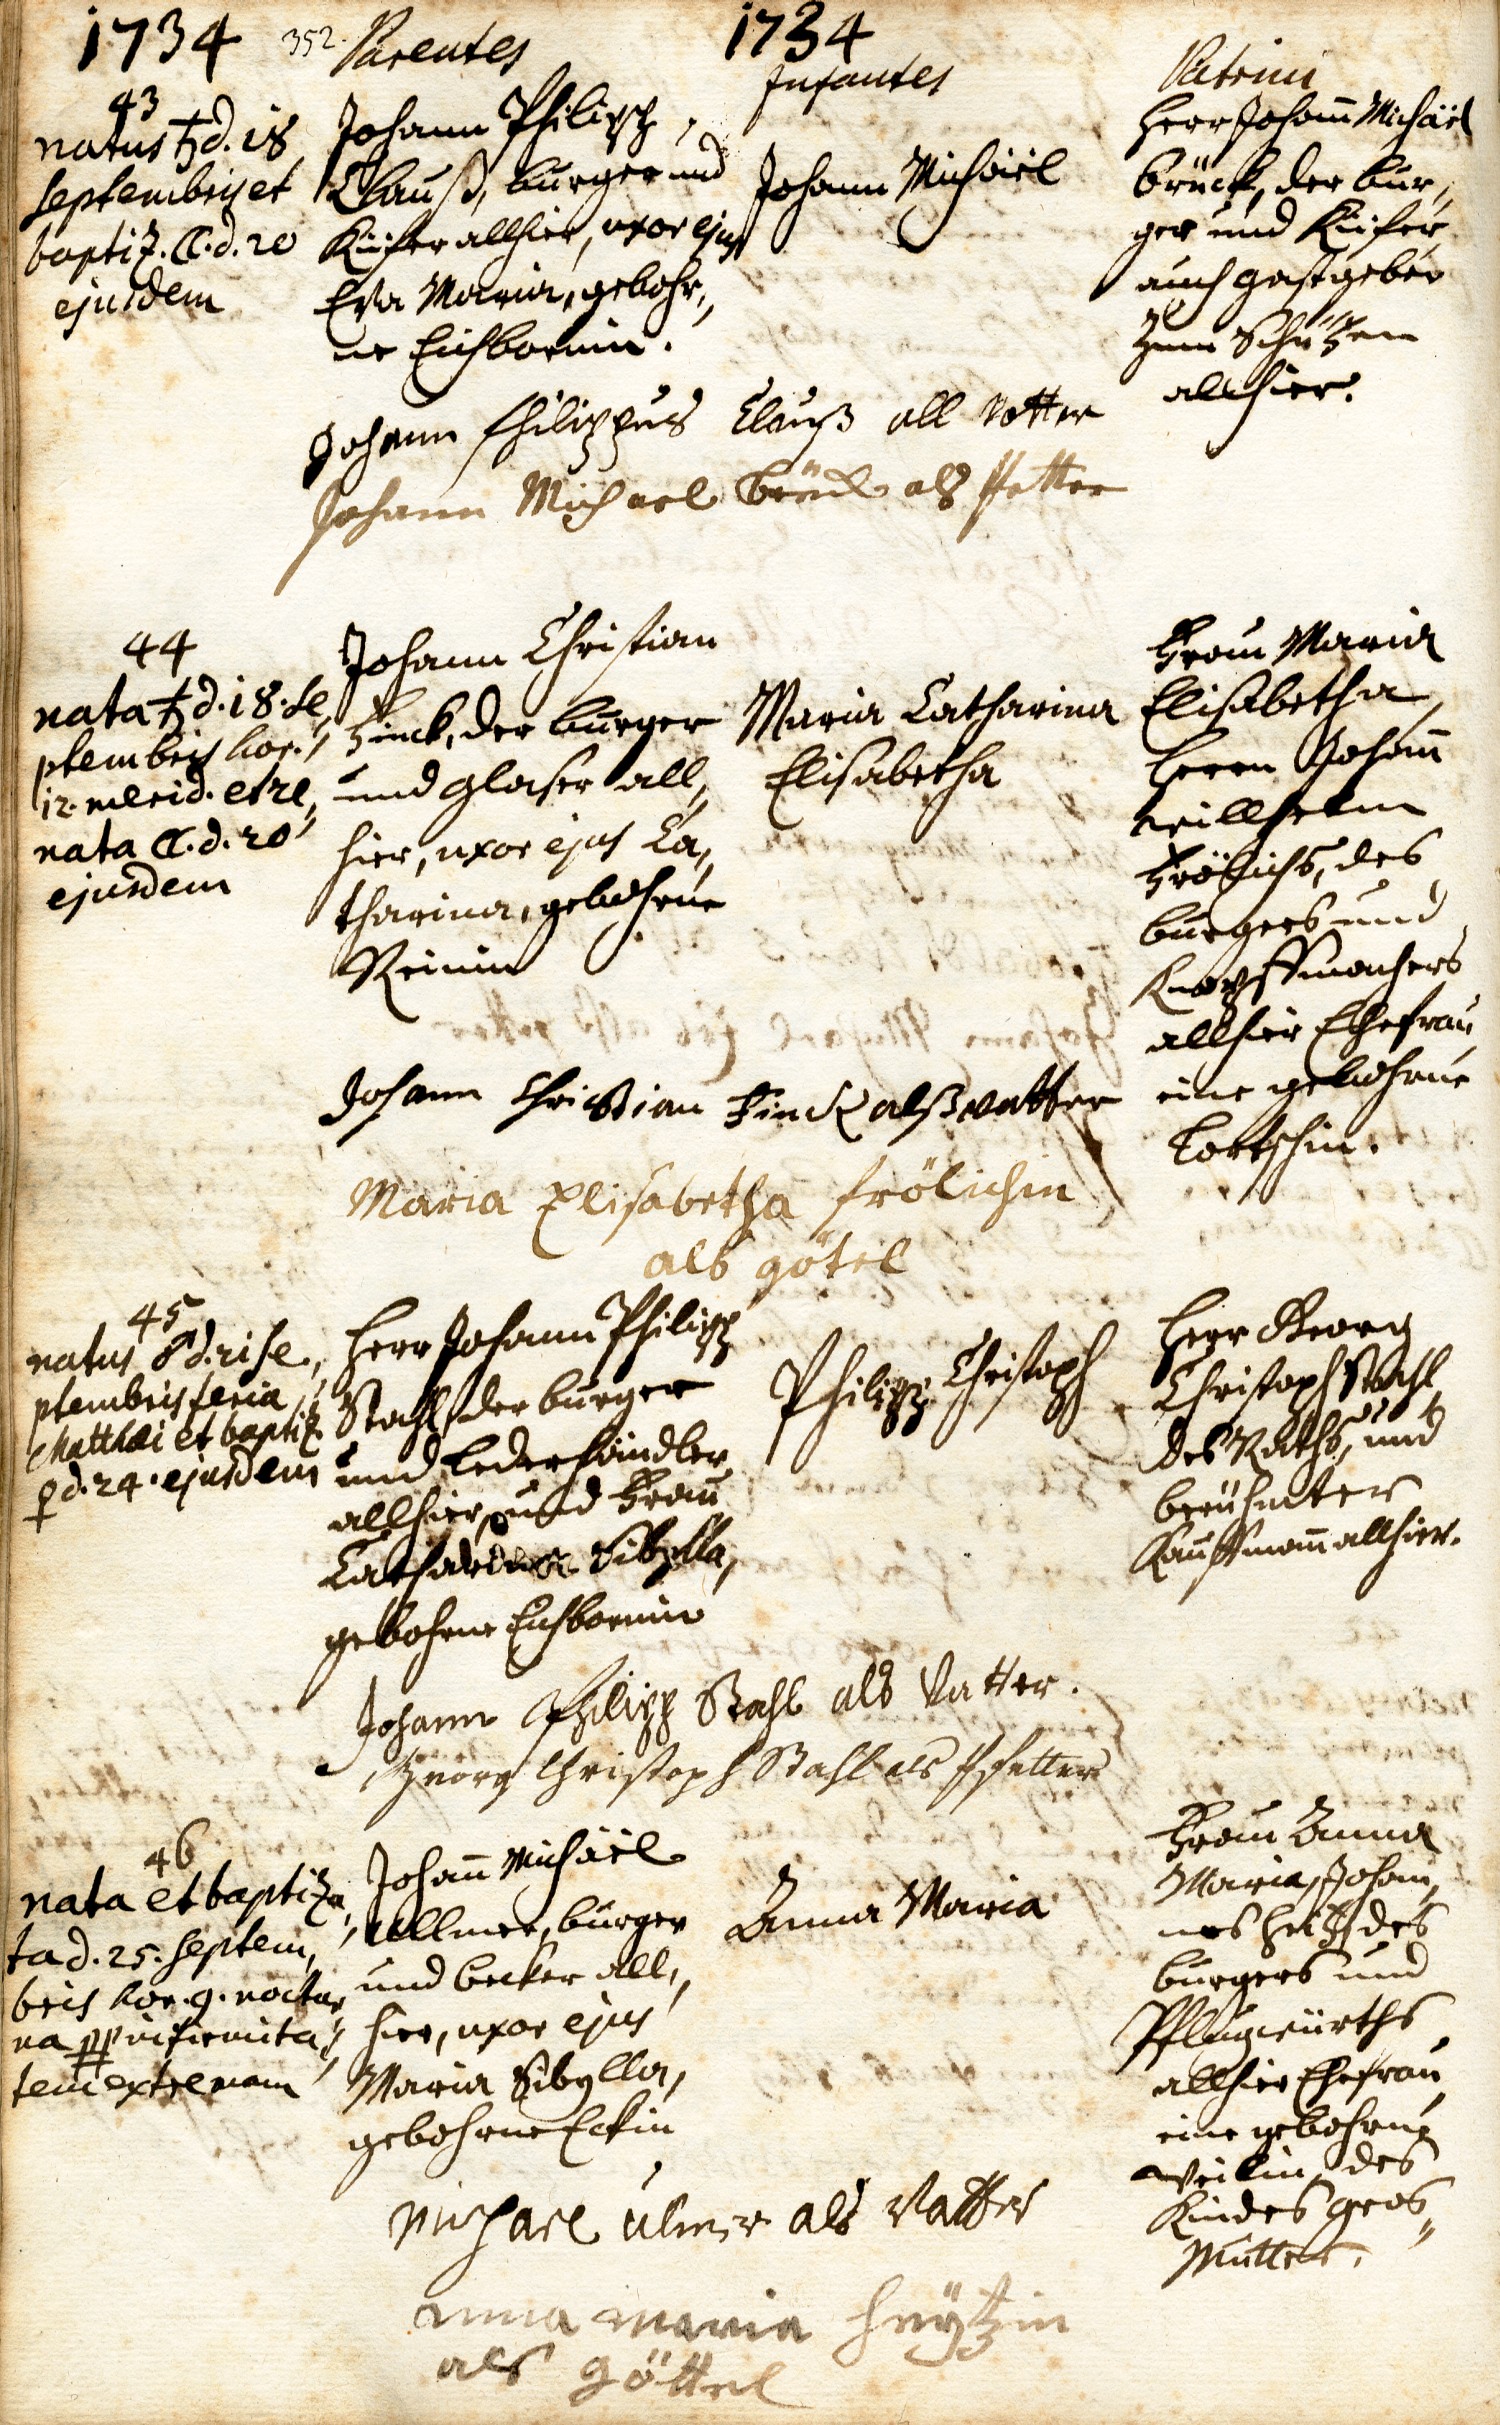 1734
352.
Parentes
1734
Infantes
Patrini
43
natus ♄ d. 18
Septembris et
baptiz. ☾. d. 20
ejusdem
Johann Philipp
Clauß, burger und
Kiefer allhier, uxor ejus
Eva Maria, gebohr„
ne Eichbornin.
Johann Michaël
Herr Johann Michaël
Brück, der bur„
ger und Kiefer
auch gastgeber
zum Schützen
allhier.
Johann Philippus Clauß all Vatter
Johann Michael Brück als Petter
44
nata ♄ d. 18. Se„
ptembris hor.
12. merid. et re„
nata ☾. d. 20
ejusdem
Johann Christian
Finck, der burger
und glaser all„
hier, uxor ejus Ca„
tharina, gebohrne
Reinin
Maria Catharina
Elisabetha
Frau Maria
Elisabetha
Herrn Johann
Willhelm
Frölichs, des
burgers und
Knopffmachers
allhier Ehefrau
eine gebohrne
Johann Christian Finck alß vatter
Maria Elisabetha frölichin
als götel
45
natus ♂ d. 21 Se„
ptembris feria
Matthæi et baptiz.
♀ d. 24. ejusdem
Herr Johann Philipp
Stahl der burger
und Lederhändler
allhier, und Frau
Catharina Sibylla,
gebohrne Eichbornin
Philipp Christoph
Herr Georg
Christoph Stahl
des Raths, und
berühmter
Kauffmann allhier.
Johann Philipp Stahl als Vatter.
Georg Christoph Stahl als Pfetter
46
nata et baptiza„
ta d. 25. Septem„
bris hor. 9. noctur„
na pp infirmita„
tem extremam
Johann Michaël
Ullmer, burger
und becker all„
hier, uxor ejus
Maria Sibylla,
gebohrne Eckin
Anna Maria
Frau Anna
Maria, Johan„
nes Heitz des
burgers und
Pflugwürths
allhier Ehefrau
eine gebohrne
Weikin, des
Kindes gros„
Mutter.
Michael ulmer als Vatter
anna maria heytzin
als göttel